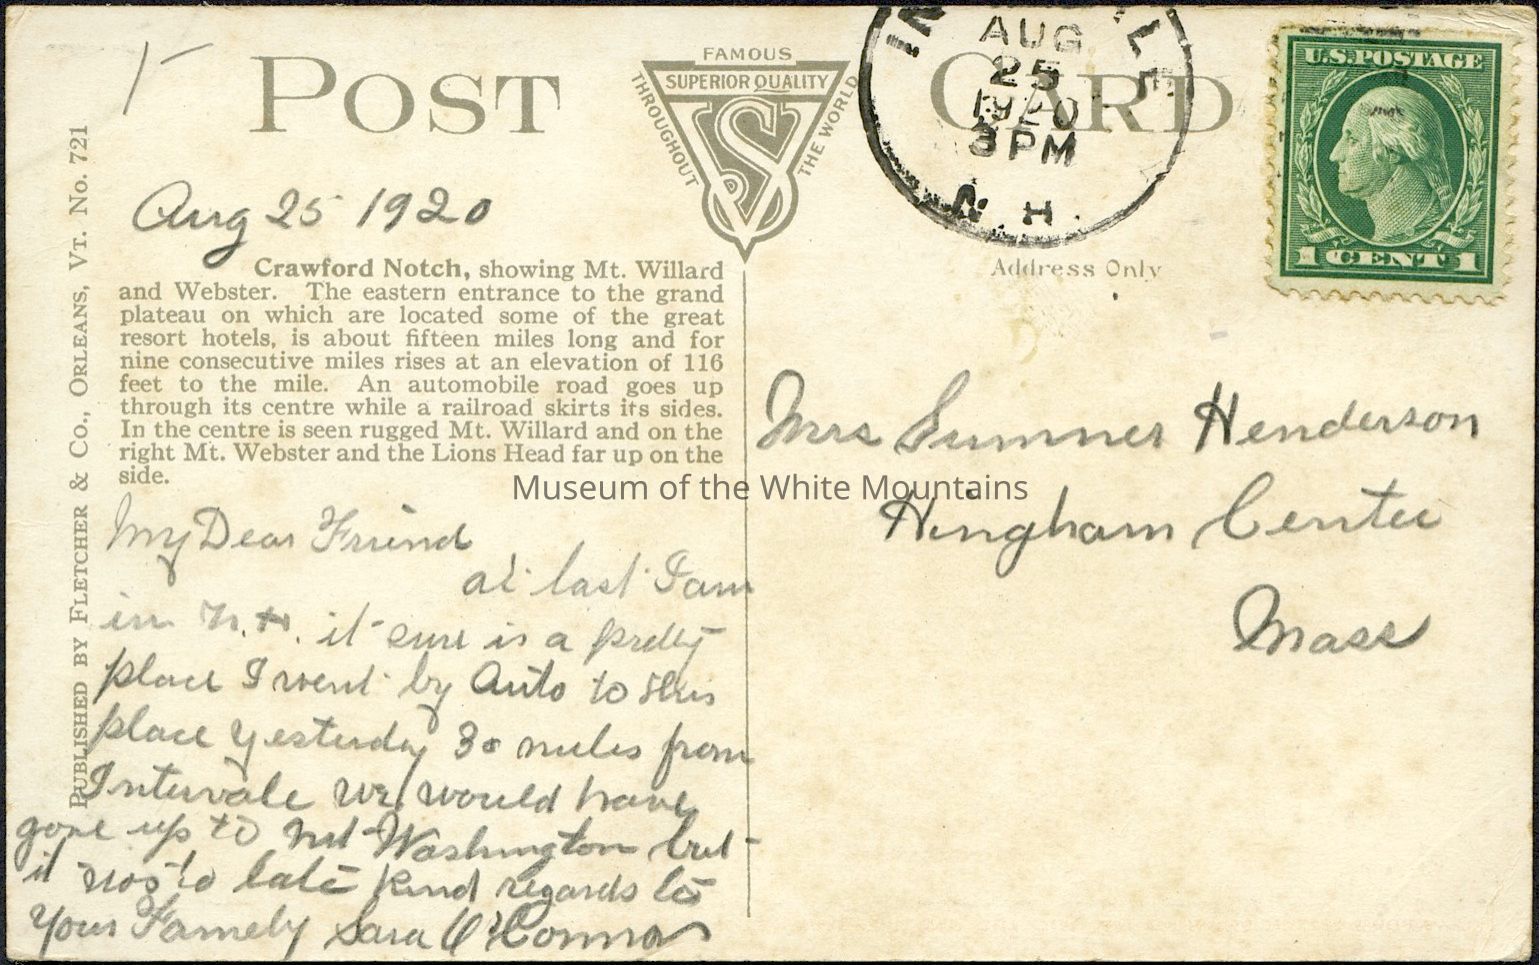 POST CARD
FAMOUS
SUPERIOR QUALITY
THROUGHOUT
THE WORLD
S
AUG
25
1920
3 PM
N. H.
U.S. POSTAGE
1 CENT 1
Address Only
PUBLISHED BY FLETCHER & CO., ORLEANS, VT. No. 721
Aug 25 1920
Crawford Notch, showing Mt. Willard
and Webster. The eastern entrance to the grand
plateau on which are located some of the great
resort hotels, is about fifteen miles long and for
nine consecutive miles rises at an elevation of 116
feet to the mile. An automobile road goes up
through its centre while a railroad skirts its sides.
In the centre is seen rugged Mt. Willard and on the
right Mt. Webster and the Lions Head far up on the
side.
My Dear Friend
at last I am
in N.H. it sure is a pretty
place I went by Auto to this
place yesterday 30 miles from
Intervale we would have
gone up to Mt Washington but
it was to late Kind regards to
your Family Sara O'Connor
Mrs Sumner Henderson
Hingham Center
Mass
Museum of the White Mountains